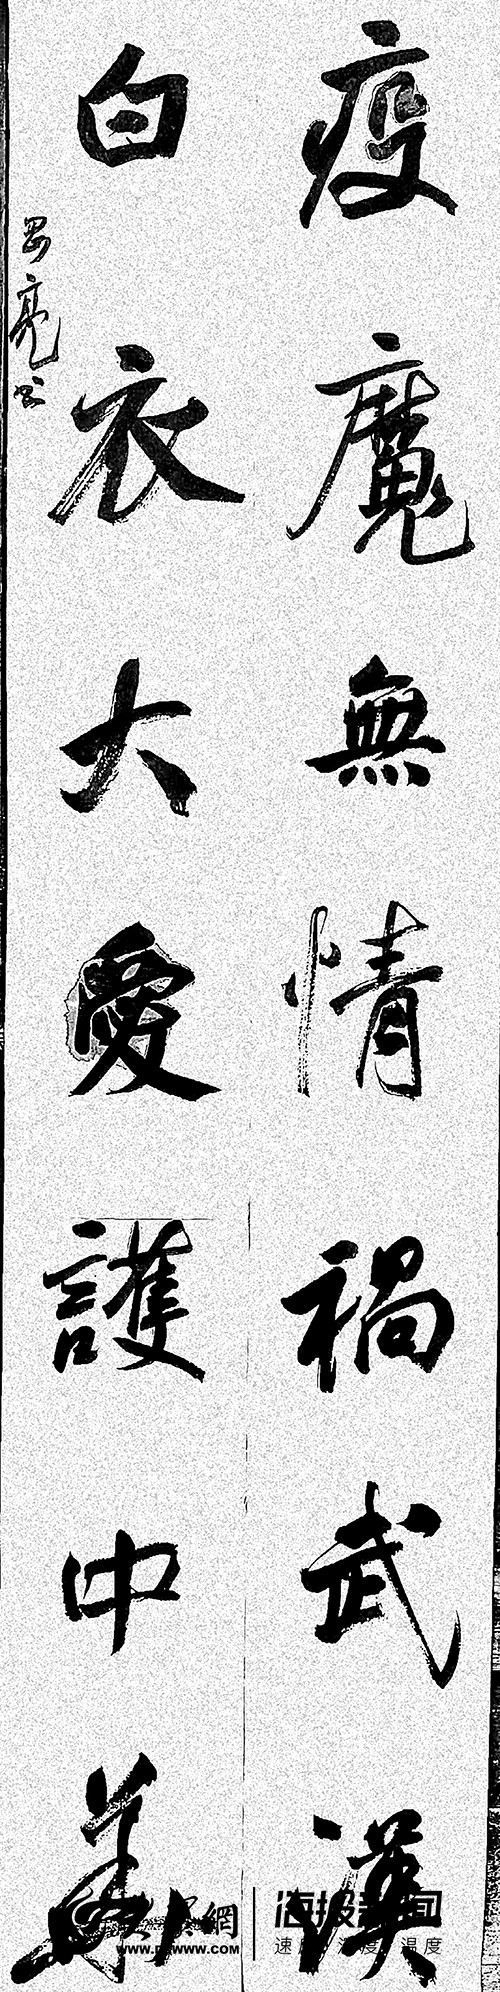 疫魔無情禍武漢
白衣大愛護中華
亮书
網 海报新闻
www.com 速度 温度